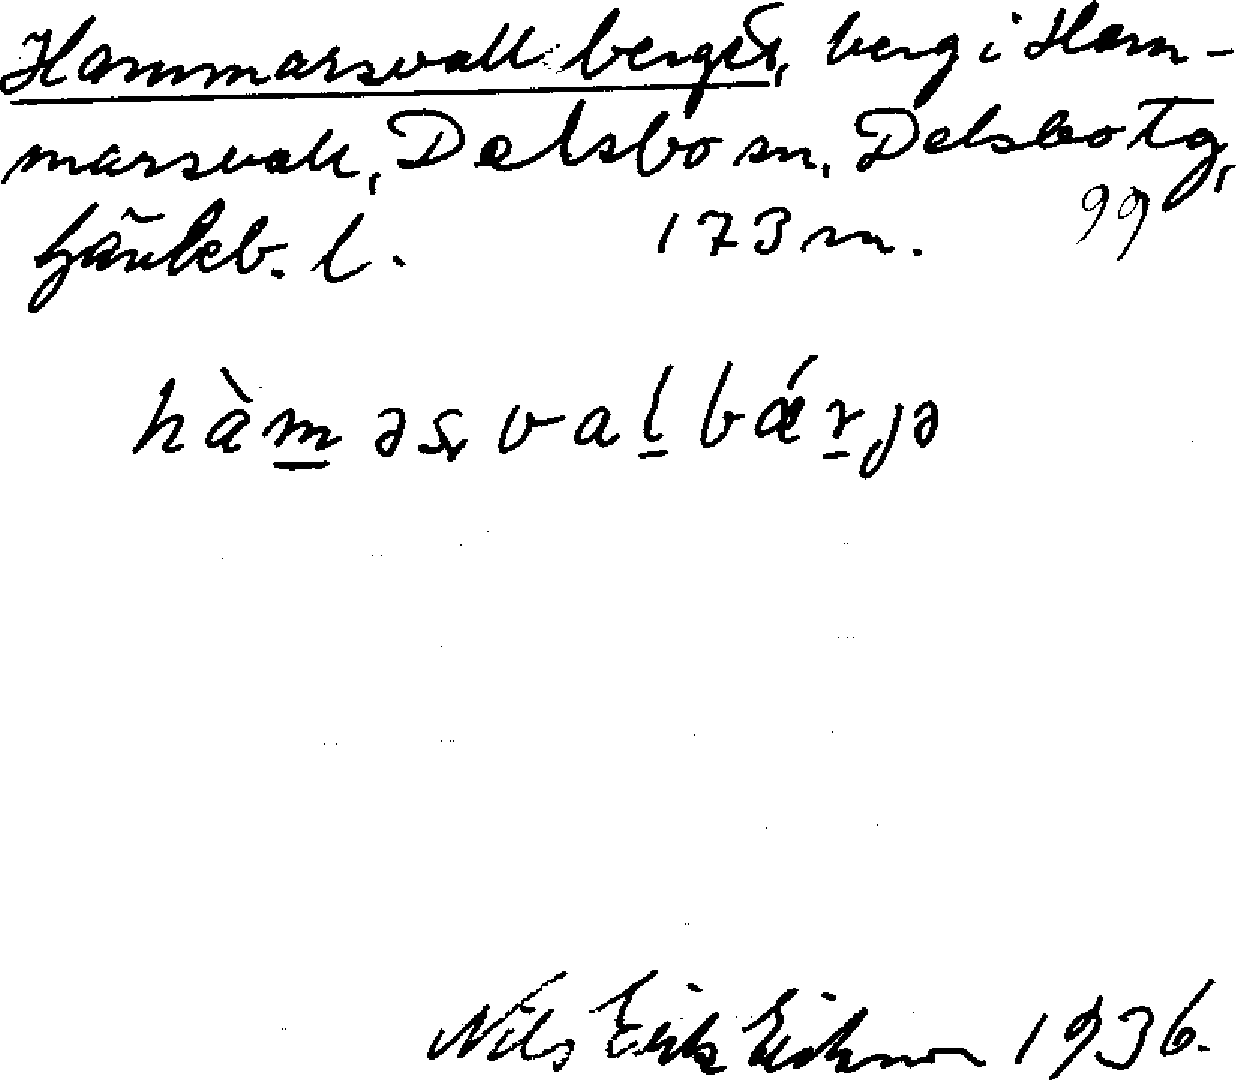 Hammarsvallberget, berg i Ham-
marsvall, Delsbo sn, Delsbo tg,
Gävleb. l. 173 m. 99
hàm̲əsval̲bǽr̲jə
Nils Erik Eriksson 1936.